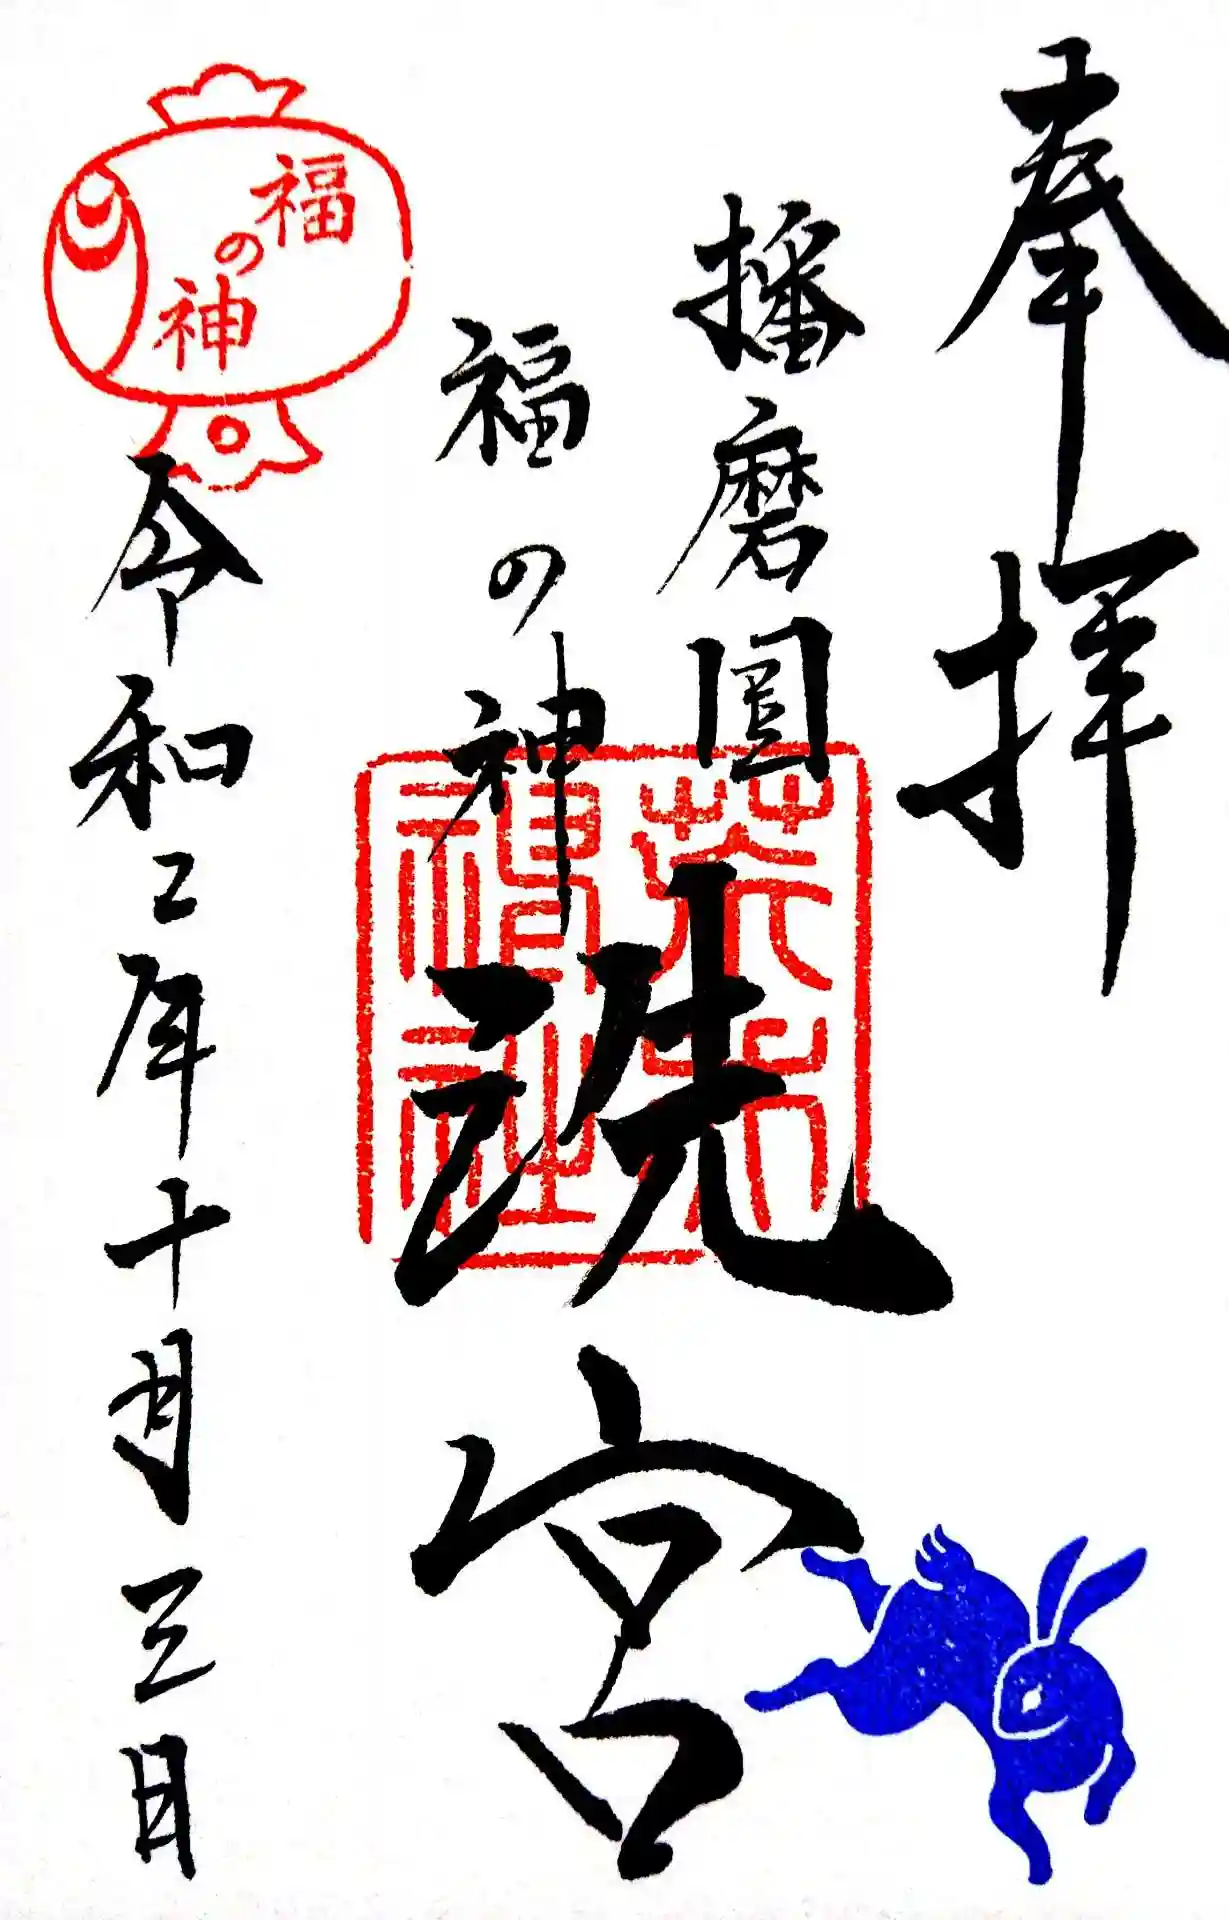 奉拝
播磨國
福の神
洗宮
令和二年十月三日
福の神
荒井神社